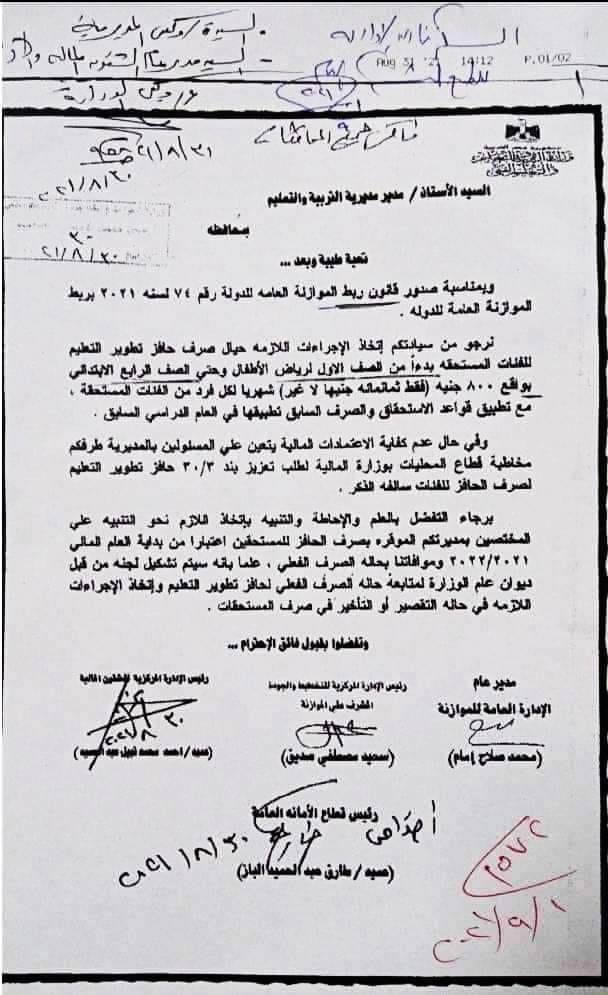 السيدة / وكيل المديرية
السيد مدير عام الشئون المالية
Aug 31 '21 14:12 P.01/02
وكيل الوزارة
٢١/٨/٣١
٢٠٢١/٨/٣٠
٣٠
٢١/٨/٣٠
فاكس جميع المحافظات
السيد الأستاذ / مدير مديرية التربية والتعليم
بمحافظه
تحية طيبة وبعد ...
وبمناسبة صدور قانون ربط الموازنة العامه للدولة رقم ٧٤ لسنه ٢٠٢١ بربط
الموازنة العامة للدوله .
نرجو من سيادتكم إتخاذ الإجراءات اللازمه حيال صرف حافز تطوير التعليم
للفئات المستحقه بدءاً من الصف الاول لرياض الأطفال وحتي الصف الرابع الابتدائي
بواقع ٨٠٠ جنيه (فقط ثمانمائه جنيها لا غير) شهريا لكل فرد من الفئات المستحقة ،
مع تطبيق قواعد الاستحقاق والصرف السابق تطبيقها في العام الدراسي السابق .
وفي حال عدم كفاية الاعتمادات المالية يتعين علي المسئولين بالمديرية طرفكم
مخاطبة قطاع المحليات بوزارة المالية لطلب تعزيز بند ٣٠/٣ حافز تطوير التعليم
لصرف الحافز للفئات سالفه الذكر .
برجاء التفضل بالعلم والإحاطة والتنبيه بإتخاذ اللازم نحو التنبيه علي
المختصين بمديرتكم الموقره بصرف الحافز للمستحقين اعتبارا من بداية العام المالي
٢٠٢٢/٢٠٢١ وموافاتنا بحاله الصرف الفعلي ، علما بانه سيتم تشكيل لجنه من قبل
ديوان عام الوزارة لمتابعة حاله الصرف الفعلي لحافز تطوير التعليم وإتخاذ الإجراءات
اللازمه في حاله التقصير أو التأخير في صرف المستحقات .
وتفضلوا بقبول فائق الإحترام ...
مدير عام
الإدارة العامة للموازنة
(محمد صلاح إمام)
رئيس الإدارة المركزية للتخطيط والجودة
المشرف علي الموازنة
(سعيد مصطفي صديق)
رئيس الإدارة المركزية للشئون المالية
٢٠٢١/٨/٣٠
(عميد / احمد محمد نبيل عبد الحميد)
رئيس قطاع الأمانه العامة
٢٠٢١/٨/٣٠
(عميد / طارق عبد الحميد الباز)
٢٠٢١/٩/١